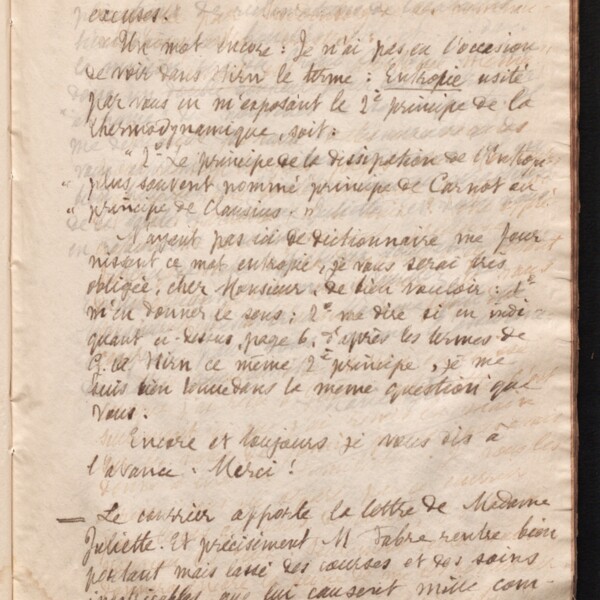 excuses.
Un mot encore : Je n'ai pas eu l'occasion
de voir dans Hirn le terme : Entropie usité
par vous en m'exposant le 2e principe de la
thermodynamique, soit :
" 2° Le principe de la dissipation de l'Entropie
" plus souvent nommé principe de Carnot ou
" principe de Clausius. "
N'ayant pas ici de dictionnaire me four
nissant ce mot entropie, je vous serai très
obligée, cher Monsieur, de bien vouloir : 1°
m'en donner le sens ; 2° me dire si en indi-
quant ci-dessus, page 6, d'après les termes de
G. A. Hirn ce même 2e principe, je me
suis bien tenue dans la même question que
vous.
Encore et toujours je vous dis à
l'avance - Merci !
— Le courrier apporte la lettre de Madame
Juliette. Et précisément M Fabre rentre bien
portant mais lassé des courses et des soins
que lui causent mille com-